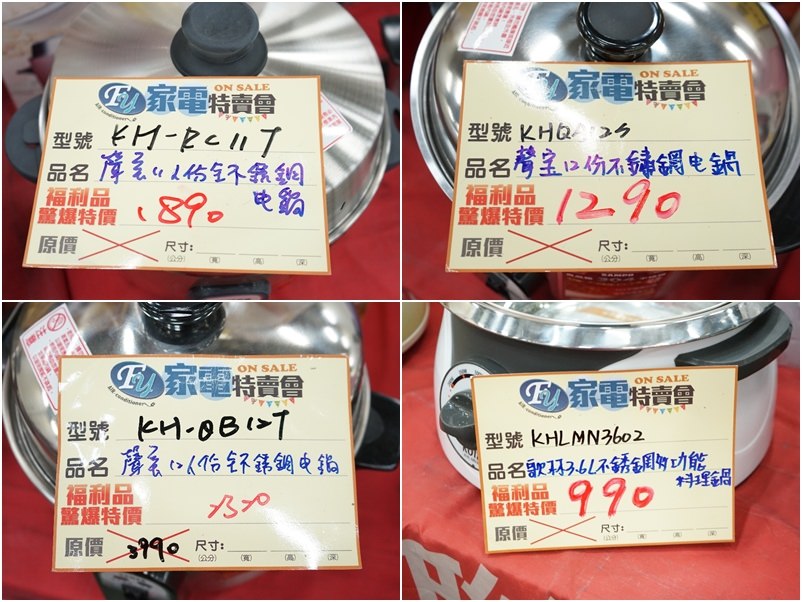 FU 家電特賣會 ON SALE
型號 KH-RC11T
品名 聲宝11人份全不銹鋼
电鍋
福利品
驚爆特價 1890
原價 尺寸:
(公分) (寬) (高) (深)
FU 家電特賣會 ON SALE
型號
品名 聲宝12份不鏽鋼电鍋
福利品
驚爆特價 1290
原價 尺寸:
(公分) (寬) (高) (深)
SAMPO
FU 家電特賣會 ON SALE
conditioner
型號 KH-QB12T
品名 聲宝12人份全不銹鋼电鍋
福利品
驚爆特價
原價 3990 尺寸:
(公分) (寬) (高) (深)
FU 家電特賣會 ON SALE
conditioner
型號 KHLMN3602
品名 歌林3.6L不銹鋼多功能
料理鍋
福利品
驚爆特價 990
原價 尺寸:
(公分) (寬) (高) (深)